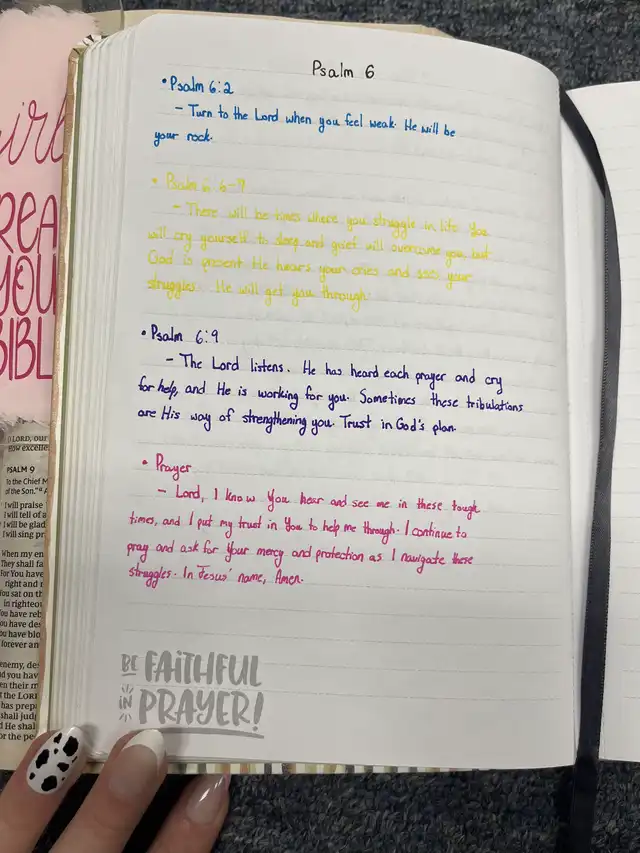 Psalm 6
• Psalm 6:2
- Turn to the Lord when you feel weak. He will be
your rock.
• Psalm 6 6-7
- There will be times where you struggle in life. You
will cry yourself to sleep and grief will overcome you, but
God is present. He hears your cries and sees your
struggles. He will get you through.
• Psalm 6:9
- The Lord listens. He has heard each prayer and cry
for help, and He is working for you. Sometimes these tribulations
are His way of strengthening you. Trust in God's plan.
• Prayer
- Lord, I know You hear and see me in these tough
times, and I put my trust in You to help me through. I continue to
pray and ask for Your mercy and protection as I navigate these
struggles. In Jesus' name, Amen.
BE FAITHFUL
IN PRAYER!
REA
YOU
BIBL
LORD, our
how excelle
PSALM 9
To the Chief M
of the Son."
I will praise
I will tell of a
I will be glad
I will sing pr
When my en
They shall fa
For You have
right and
You sat on th
in righteou
You have reb
You have des
You have blo
forever an
enemy, des
d you hav
en their m
t the LORD
has prepa
shall judg
d He shal
or the pe